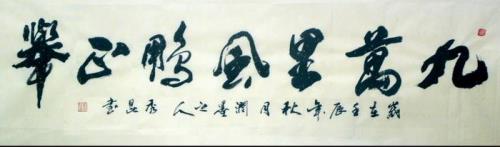 九萬里風鵬正舉
歲在壬辰年秋月潤墨之人昆書